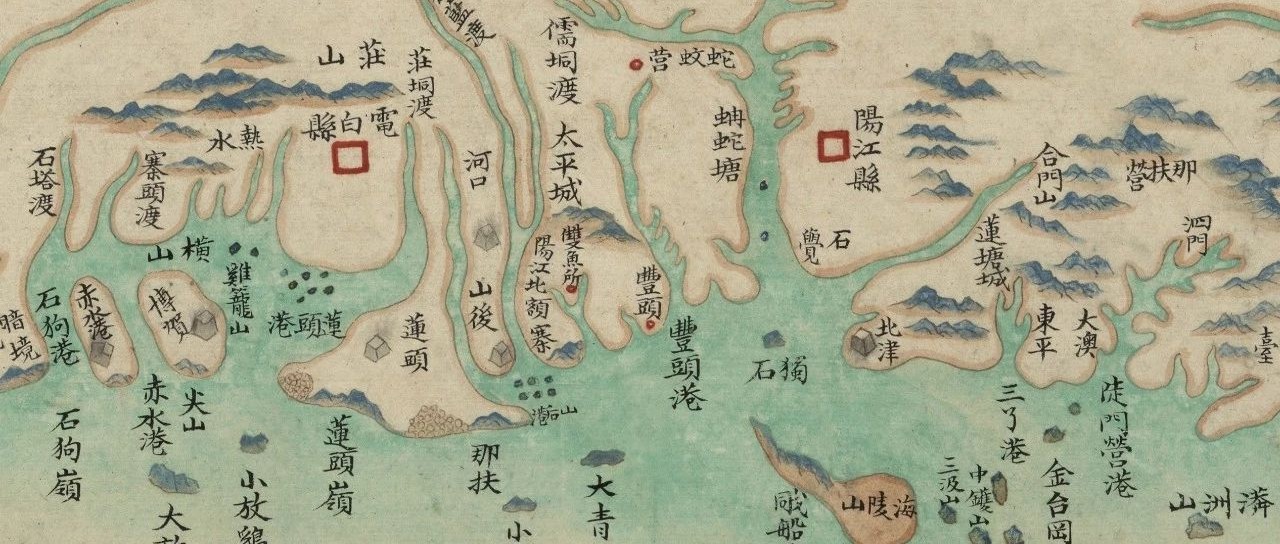 藍渡
儒垌渡
蛇蚊营
莊山
莊垌渡
電白縣
熱水
石塔渡
寨頭渡
河口
太平城
蚺蛇塘
陽江縣
合門山
那扶營
泗門
石覺
蓮塘城
橫山
雞籠山
蓮頭港
石狗港
赤水港
博賀
暗境
山後
陽江北額寨
雙魚所
豐頭
豐頭港
蓮頭
獨石
北津
東平
大澳
臺
山后港
尖山
赤水港
石狗嶺
蓮頭嶺
那扶
小放雞
大放
大青
小
海陵山
戙船
三丫港
陡門營港
金台岡
三汲山
中鑊山
漭洲山